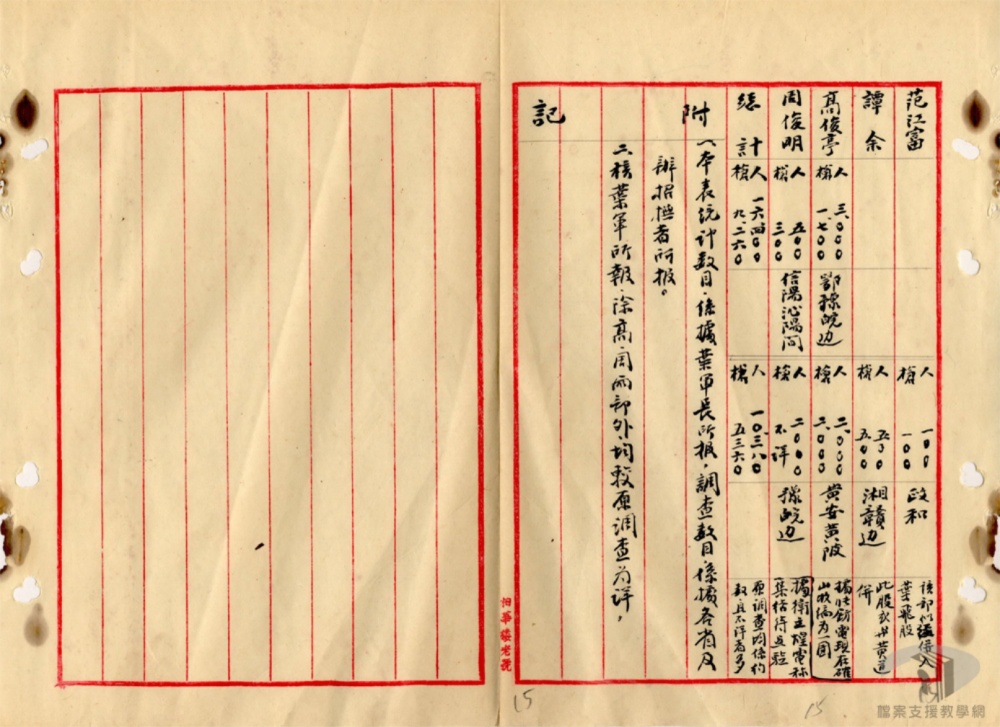 范江富
人 一〇〇
槍 一〇〇
政和
該部似經併入
葉飛股
譚余
人 五〇〇
槍 五〇〇
湘贛边
此股或与黄道
併
高俊亭
人 三、〇〇〇
槍 一、七〇〇
鄂豫皖边
人 二、〇〇〇
槍 二、〇〇〇
黄安黄陂
電現在確
山改編为一團
周俊明
人 五〇〇
槍 三〇〇
信陽沁陽間
人 二〇〇〇
槍 不详
豫皖边
據衛主任電称
集結待点驗
總計
人 一六四〇〇
槍 九、二六〇
人 一〇、三八〇
槍 五三六〇
原調查均係約
数且不详者多
附記
一、本表統计数目、係據葉軍長所报、調查数目係據各省及
辦招撫者所报。
二、核葉軍所報、除高周兩部外、均較原調查为详、
怡華錢老號
15
15
檔案支援教學網